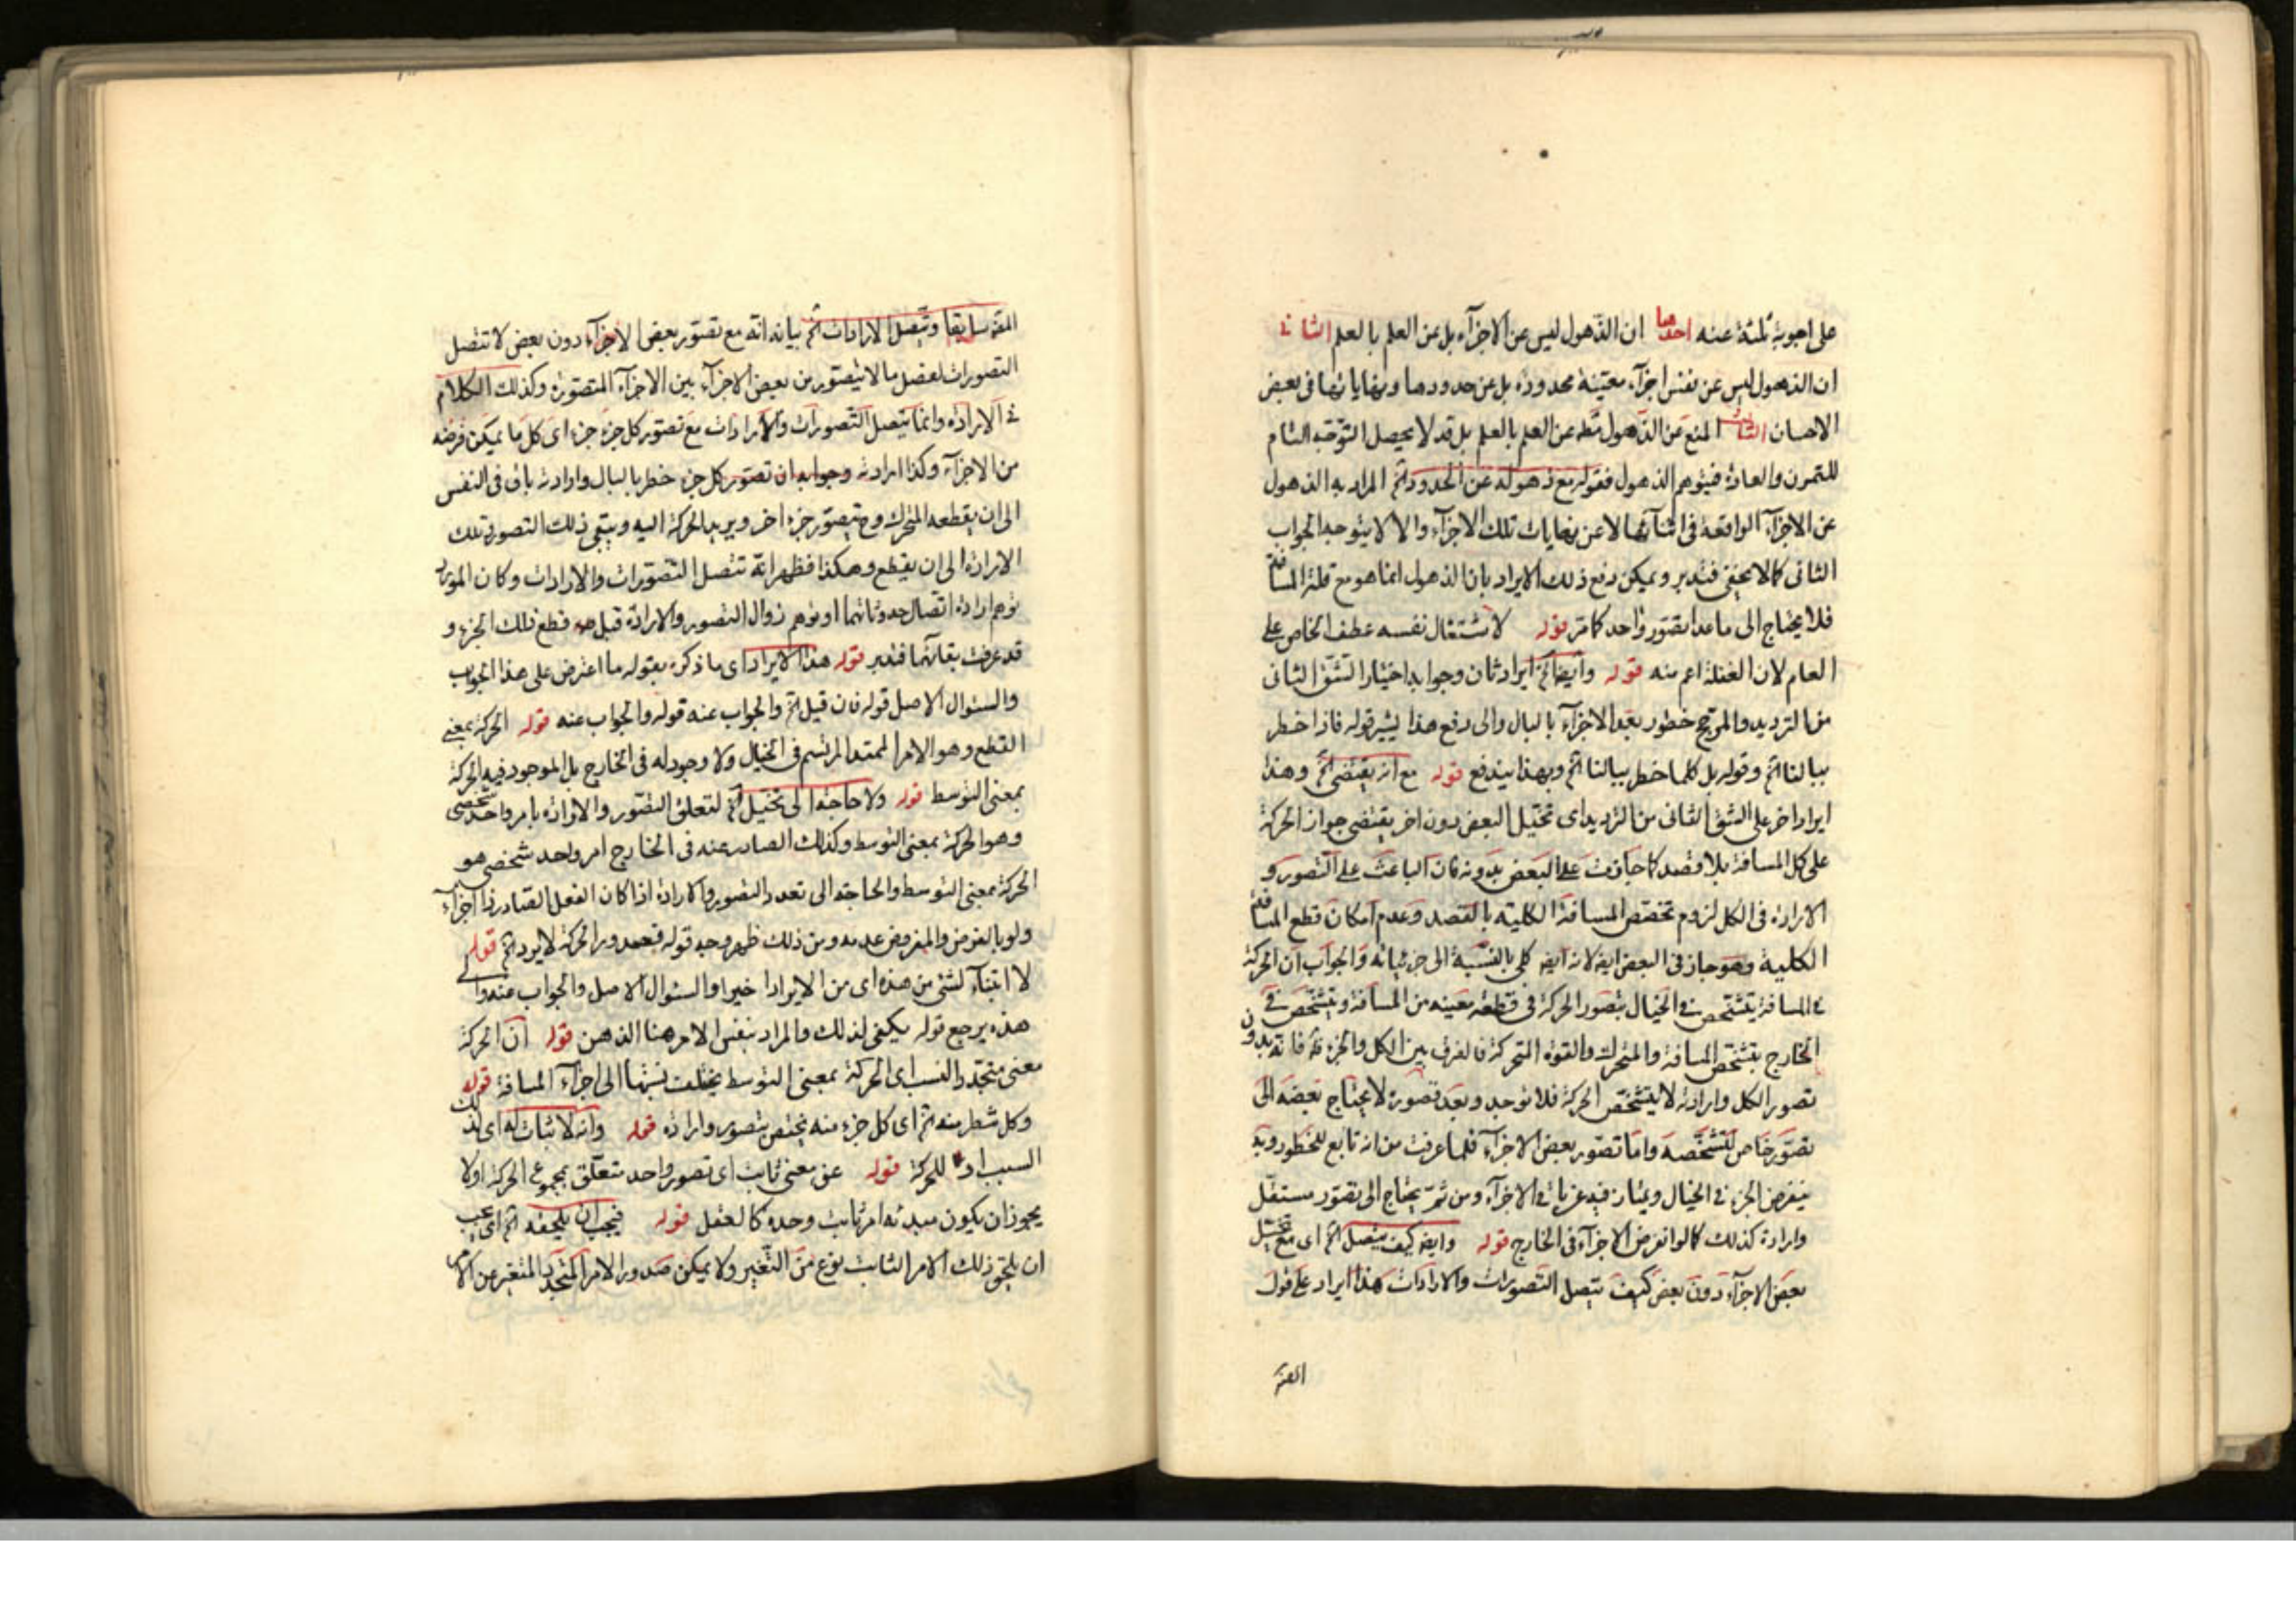 على اجوبة ثلثة عنه احدها ان الذهول ليس عن الاجزآء بل عن العلم بالعلم الثانى
ان الذهول ليس عن نفس اجزآء معينة محدودة بل عن حدودها ونهاياتها فى بعض
الاحيان الثالث المنع عن الذهول مطه عن العلم بالعلم بل قد لا يحصل التوجه التام
للتمرن والعادة فيتوهم الذهول فقوله مع ذهوله عن الحدود اﻫ المراد به الذهول
عن الاجزآء الواقعة فى اثنآئها لا عن نهايات تلك الاجزآء والا لا يتوجه الجواب
الثانى كما لا يخفى فتدبر ويمكن دفع ذلك الايراد بان الذهول انما هو مع قلة المسافة
فلا يحتاج الى ما عدا تصور واحد كما مر قوله لاشتغال نفسه عطف الخاص على
العام لان الغفلة اعم منه قوله وايضا اﻫ ايراد ثان وجوابه اختيار الشق الثانى
من الترديد والمرجح خطور بعد الاجزآء بالبال والى دفع هذا يشير قوله فاذا خطر
ببالنا اﻫ وقوله بل كلما خطر ببالنا اﻫ وبهذا يندفع قوله مع انه يقتضى اﻫ وهذا
ايراد اخر على الشق الثانى من الترديد اى تخيل البعض دون اخر يقتضى جواز الحركة
على كل المسافة بلا قصد كما جازت على البعض بدونه فان الباعث على التصور و
الارادة فى الكل لزوم تخصص المسافة الكلية بالقصد وعدم امكان قطع المسافة
الكلية وهو جاز فى البعض ايضا لانه ايضا كلى بالنسبة الى جزئياته والجواب ان الحركة
فى المسافة يتشخص فى الخيال بتصور الحركة فى قطعة معينة من المسافة ويتشخص فى
الخارج بتشخص المسافة والمتحرك والقوة المتحركة فالفرق بين الكل والجزء فانه بدون
تصور الكل وارادته لا يتشخص الحركة فلا توجد وبعد تصوره لا يحتاج بعضه الى
تصور خاص لتشخصه واما تصور بعض الاجزآء فلما عرفت من انه تابع للخطور وبه
ينفرض الجزء فى الخيال ويمتاز فيه عن باقى الاجزآء ومن ثمة يحتاج الى تصور مستقل
وارادة كذلك كما لو انفرض الاجزآء فى الخارج قوله وايضا كيف يتصل اﻫ اى مع تخيل
بعض الاجزآء دون بعض كيف يتصل التصورات والارادات هذا ايراد على قول
القوم
سابقا ويتصل الارادات اﻫ بيانه انه مع تصور بعض الاجزآء دون بعض لا تتصل
التصورات لفصل ما لا يتصور من بعض الاجزآء بين الاجزآء المتصورة وكذلك الكلام
فى الارادة وانما يتصل التصورات والارادات مع تصور كل جزء جزء اى كل ما يمكن فرضه
من الاجزآء وكذا ارادته وجوابه ان تصور كل جزء خطر بالبال وارادته باق فى النفس
الى ان يقطعه المتحرك وح يتصور جزء اخر ويريد الحركة اليه ويبقى ذلك التصور وتلك
الارادة الى ان يقطع وهكذا فظهر انه تتصل التصورات والارادات وكان المورد
توهم ارادة اتصال حدوثاتهما او توهم زوال التصور والارادة قبل قطع ذلك الجزء و
قد عرفت بقآئهما فتدبر قوله هذا الايراد اى ما ذكره بقوله ما اعترض على هذا الجواب
والسئوال الاصل قوله فان قيل اﻫ والجواب عنه قوله والجواب عنه قوله الحركة بمعنى
القطع وهو الامر الممتد المرتسم فى الخيال ولا وجود له فى الخارج بل الموجود فيه الحركة
بمعنى التوسط قوله ولا حاجة الى تخيل اﻫ لتعلق التصور والارادة بامر واحد شخصى
وهو الحركة بمعنى التوسط وكذلك الصادر عنه فى الخارج امر واحد شخصى هو
الحركة بمعنى التوسط والحاجة الى تعدد التصور والارادة اذا كان الفعل الصادر ذا اجزآء
ولو بالفرض والمفروض عدمه ومن ذلك ظهر وجه قوله فبعد ورا الحركة لا يود اﻫ قوله
لا ابتنآء لشئ من هذه اى من الايراد اخيرا والسئوال الاصل والجواب عنه والى
هذه يرجع قوله يكفى لذلك والمراد بنفس الامر هنا الذهن قوله ان الحركة
معنى متجدد النسب اى الحركة بمعنى التوسط يختلف نسبتها الى اجزآء المسافة قوله
وكل شطر منه اﻫ اى كل جزء منه يختص بتصور وارادة قوله وانه لا ثبات له اى لذلك
السبب او للحركة قوله عن معنى ثابت اى تصور واحد متعلق بمجموع الحركة اولا
يجوز ان يكون مبدئه امر ثابت وحده كالعقل قوله فيجب ان يلحقه اﻫ اى يجب
ان يلحق ذلك الامر الثابت نوع من التغير ولا يمكن صدور الامر المتجدد المتغير عن الامر